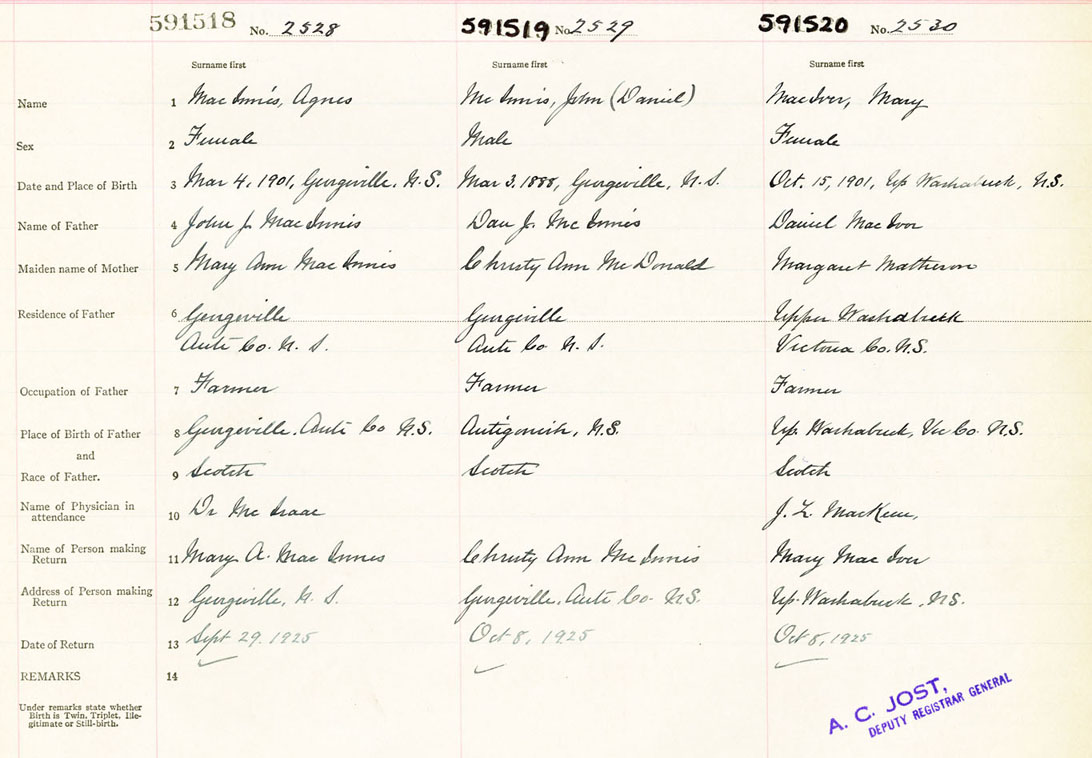 591518 No. 2528 591519 No. 2529 591520 No. 2530
Surname first Surname first Surname first
Name 1 MacInnis, Agnes McInnis, John (Daniel) MacIver, Mary
Sex 2 Female Male Female
Date and Place of Birth 3 Mar 4, 1901, Georgeville, N.S. Mar 3, 1888, Georgeville, N.S. Oct. 15, 1901, Up Washabuck, N.S.
Name of Father 4 John J. MacInnis Dan J. McInnis Daniel MacIvor
Maiden name of Mother 5 Mary Ann MacInnis Christy Ann McDonald Margaret Matheson
Residence of Father 6 Georgeville Georgeville Upper Washabuck
Anti Co. N. S. Anti Co N. S. Victoria Co. N.S.
Occupation of Father 7 Farmer Farmer Farmer
Place of Birth of Father 8 Georgeville. Anti Co N.S. Antigonish, N.S. Up. Washabuck, Vic Co. N.S.
and
Race of Father. 9 Scotch Scotch Scotch
Name of Physician in
attendance 10 Dr McIsaac J. L. MacKeen,
Name of Person making
Return 11 Mary A. MacInnes Christy Ann McInnis Mary MacIver
Address of Person making
Return 12 Georgeville, N. S. Georgeville, Anti Co. N.S. Up. Washabuck, N.S.
Date of Return 13 Sept 29, 1925 Oct 8, 1925 Oct 8, 1925
REMARKS 14
Under remarks state whether
Birth is Twin, Triplet, Ille-
gitimate or Still-birth.
A. C. JOST,
DEPUTY REGISTRAR GENERAL